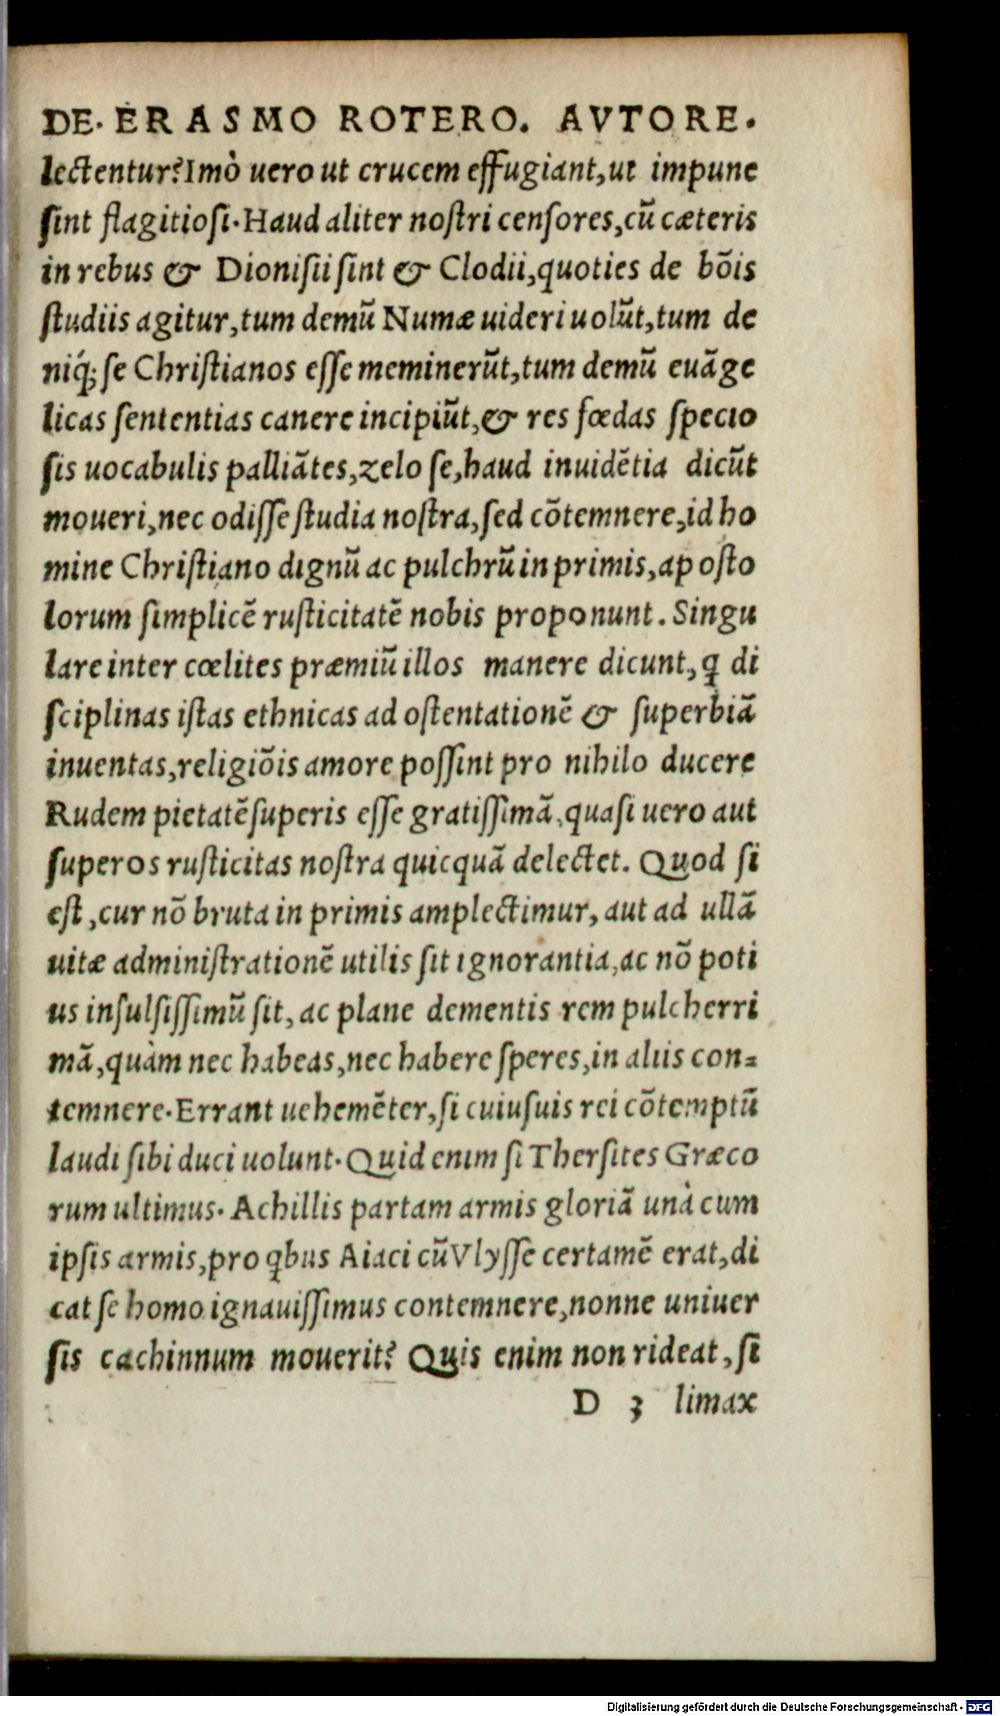 DE. ERASMO ROTERO. AVTORE.
lectentur? Imò uero ut crucem effugiant, ut impune
ſint flagitioſi. Haud aliter noſtri cenſores, cũ cæteris
in rebus & Dioniſii ſint & Clodii, quoties de bõis
ſtudiis agitur, tum demũ Numæ uideri uolũt, tum de
niq́; ſe Chriſtianos eſſe meminerũt, tum demũ euãge
licas ſententias canere incipiũt, & res fœdas ſpecio
ſis uocabulis palliãtes, zelo ſe, haud inuidẽtia dicũt
moueri, nec odiſſe ſtudia noſtra, ſed cõtemnere, id ho
mine Chriſtiano dignũ ac pulchrũ in primis, apoſto
lorum ſimplicẽ ruſticitatẽ nobis proponunt. Singu
lare inter cœlites præmiũ illos manere dicunt, ꝗ di
ſciplinas iſtas ethnicas ad oſtentationẽ & ſuperbiã
inuentas, religiõis amore poſſint pro nihilo ducere
Rudem pietatẽ ſuperis eſſe gratiſſimã, quaſi uero aut
ſuperos ruſticitas noſtra quicquã delectet. Quod ſi
eſt, cur nõ bruta in primis amplectimur, aut ad ullã
uitæ adminiſtrationẽ utilis ſit ignorantia, ac nõ poti
us inſulſiſſimũ ſit, ac plane dementis rem pulcherri
mã, quàm nec habeas, nec habere ſperes, in aliis con⸗
temnere. Errant uehemẽter, ſi cuiuſuis rei cõtemptũ
laudi ſibi duci uolunt. Quid enim ſi Therſites Græco
rum ultimus. Achillis partam armis gloriã unà cum
ipſis armis, pro ꝗbus Aiaci cũ Vlyſſe certamẽ erat, di
cat ſe homo ignauiſſimus contemnere, nonne uniuer
ſis cachinnum mouerit? Quis enim non rideat, ſi
D 3 limax
Digitalisierung gefördert durch die Deutsche Forschungsgemeinschaft - DFG